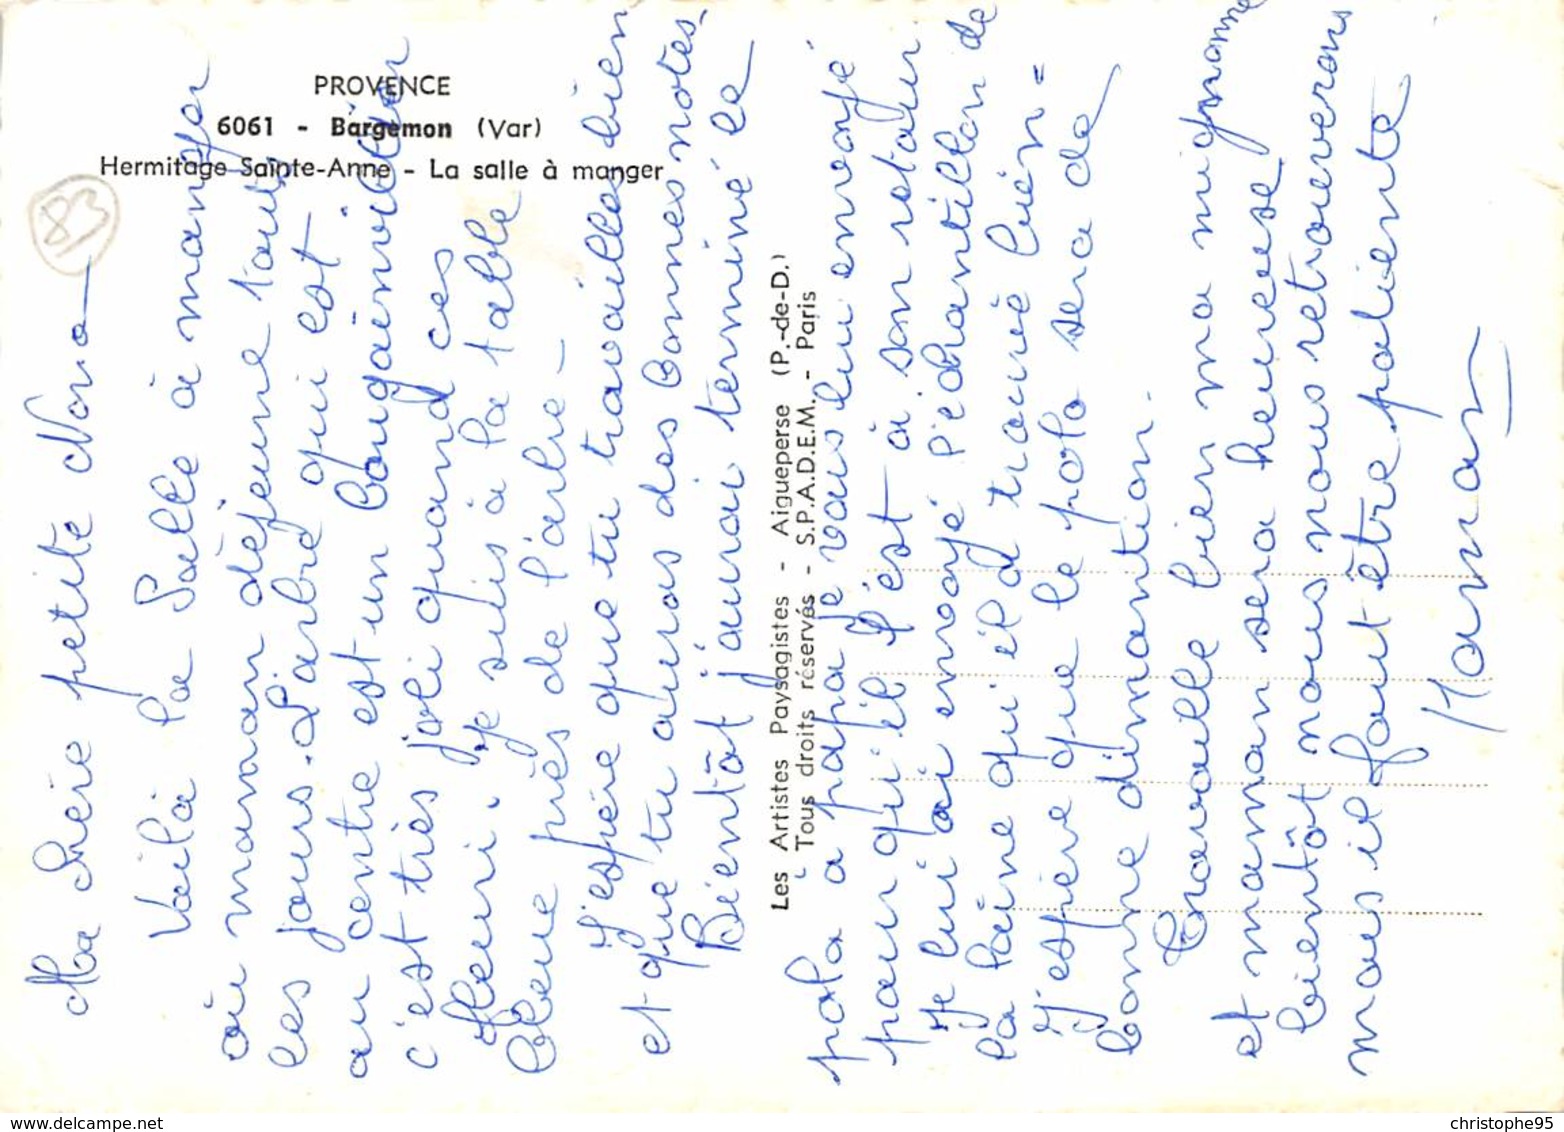 PROVENCE
6061 - Bargemon (Var)
Hermitage Sainte-Anne - La salle à manger
83
Ma chère petite Nora
Voilà la Salle à manger
où maman déjeune tous
les jours. L'arbre qui est
au centre est un bougainvillier
c'est très joli quand ces
fleuri, je suis à la table
bleue près de l'arbre -
J'espère que tu travailles bien
et que tu auras des bonnes notes.
Bientôt j'aurai terminé le
Les Artistes Paysagistes - Aigueperse (P.-de-D.)
Tous droits réservés - S.P.A.D.E.M. - Paris
polo à papa je vais lui envoyé
pour qu'il l'est à son retour.
Je lui ai envoyé l'échantillon de
la laine qu'il a trouvé bien =
J'espère que le polo sera de
bonne dimantion.
Travaille bien ma mignonne
et maman sera heureuse
bientôt nous nous retrouverons
mais il faut être patiente
Maman
christophe95